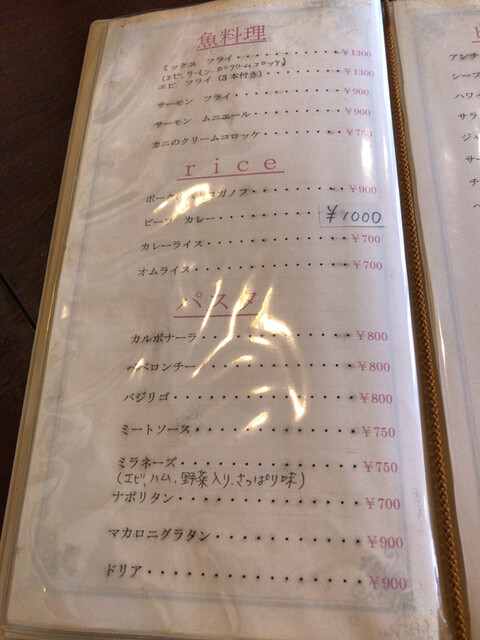 魚料理
ミックス フライ・・・・・・・・・・¥1300
(エビ, サーモン, カニクリームコロッケ)
エビ フライ (3本付き)・・・・・・・・・¥1300
サーモン フライ・・・・・・・・・・¥900
サーモン ムニエール・・・・・・・・¥900
カニのクリームコロッケ・・・・・・・・¥750
rice
¥900
ビーフ カレー・・・・・・・・¥1000
カレーライス・・・・・・・・・・・¥700
オムライス・・・・・・・・・・・・¥700
パスタ
カルボナーラ・・・・・・・・・・・¥800
ペペロンチー・・・・・・・・・・・¥800
バジリゴ・・・・・・・・・・・・・¥800
ミートソース・・・・・・・・・・・¥750
ミラネーズ・・・・・・・・・・・・¥750
(エビ, ハム, 野菜入り, さっぱり味)
ナポリタン・・・・・・・・・・・・¥700
マカロニグラタン・・・・・・・・・・¥900
ドリア・・・・・・・・・・・・・・¥900
アンチ
シーフ
ハワイ
サラ
ジャ
サー
チ